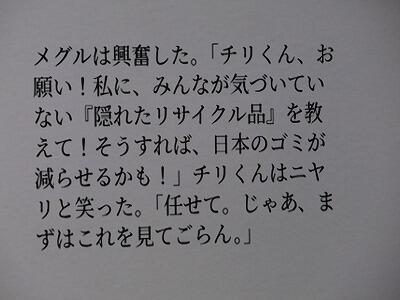 メグルは興奮した。「チリくん、お
願い！私に、みんなが気づいてい
ない『隠れたリサイクル品』を教
えて！そうすれば、日本のゴミが
減らせるかも！」チリくんはニヤ
リと笑った。「任せて。じゃあ、ま
ずはこれを見てごらん。」